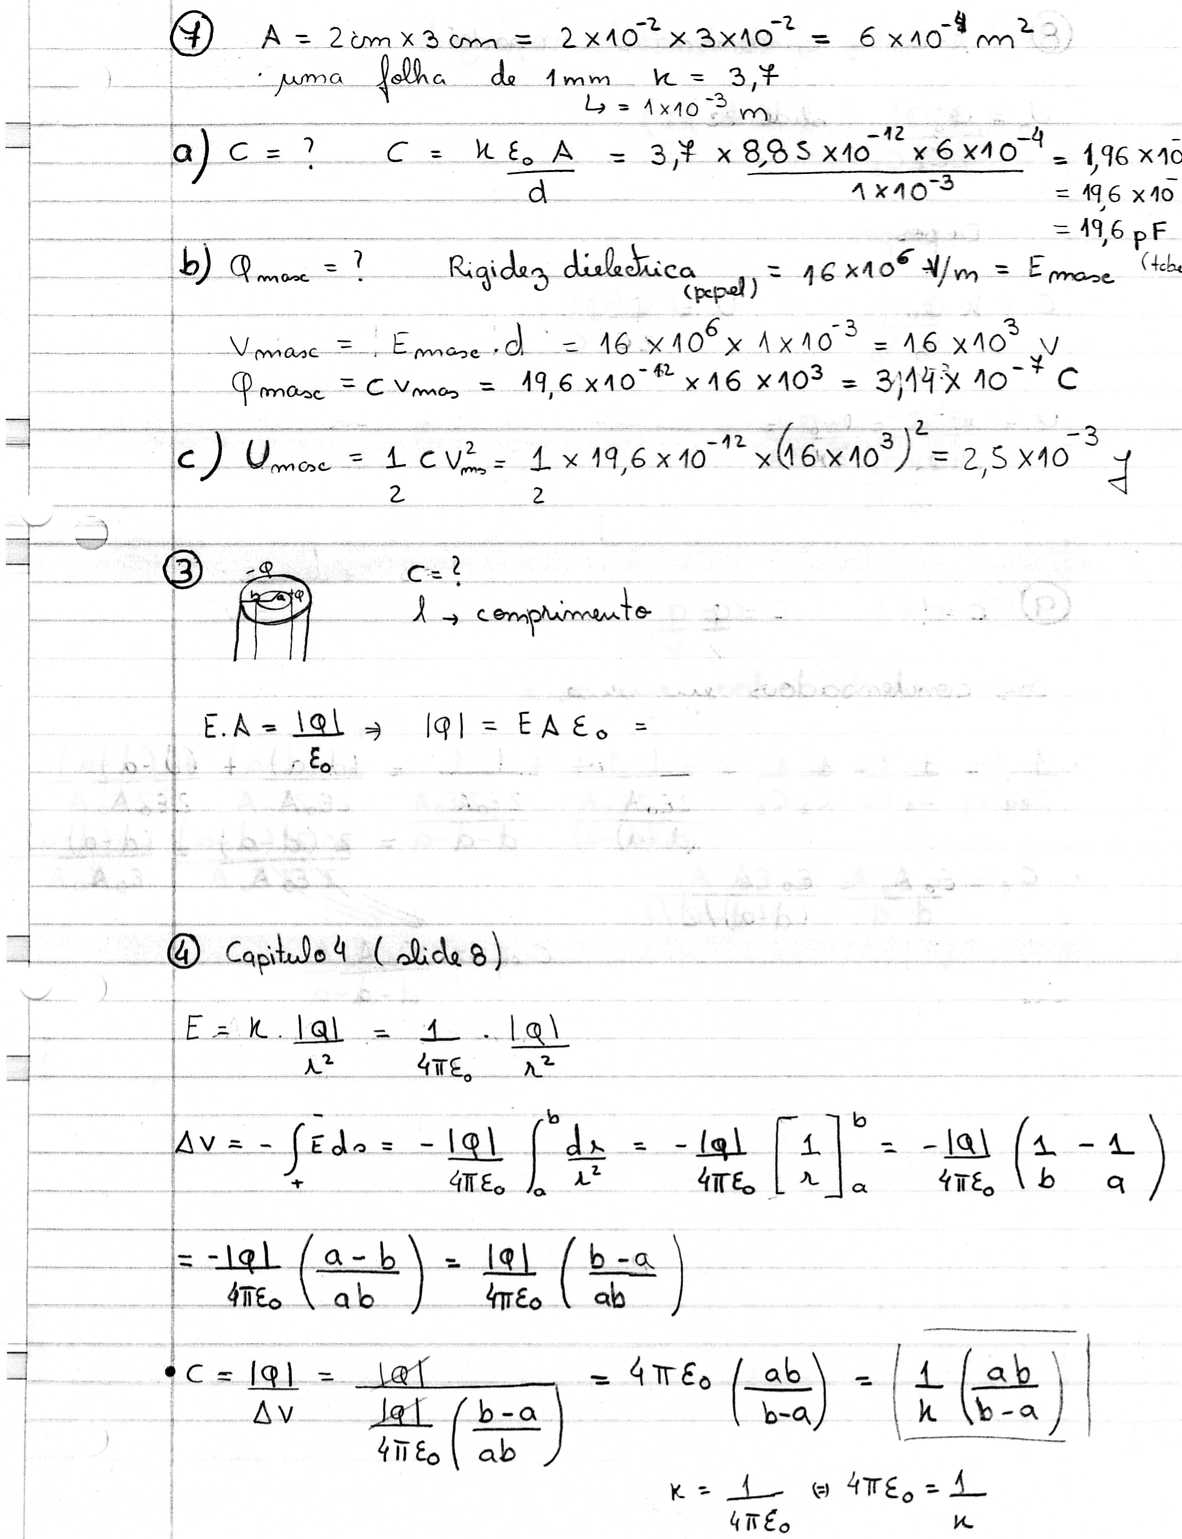 ⑦ A = 2cm × 3cm = 2×10⁻² × 3×10⁻² = 6×10⁻⁴ m²
· uma folha de 1mm κ = 3,7
↳ = 1×10⁻³ m
a) C = ? C = κ ε₀ A / d = 3,7 × 8,85×10⁻¹² × 6×10⁻⁴ / 1×10⁻³ = 1,96 × 10
= 19,6 × 10⁻
= 19,6 pF
b) Qmax = ? Rigidez dielectrica (papel) = 16×10⁶ V/m = Emax
Vmax = Emax . d = 16×10⁶ × 1×10⁻³ = 16×10³ V
Qmax = C Vmax = 19,6×10⁻¹² × 16×10³ = 3,14 × 10⁻⁷ C
c) Umax = 1/2 C V²max = 1/2 × 19,6×10⁻¹² × (16×10³)² = 2,5×10⁻³ J
③ -Q C = ?
b a +Q l → comprimento
E.A = |Q|/ε₀ ⇒ |Q| = E A ε₀ =
④ Capitulo 4 (slide 8)
E = κ . |Q|/r² = 1/4πε₀ . |Q|/r²
ΔV = - ∫₊⁻ E ds = - |Q|/4πε₀ ∫ₐᵇ dr/r² = - |Q|/4πε₀ [1/r]ₐᵇ = - |Q|/4πε₀ (1/b - 1/a)
= -|Q|/4πε₀ (a-b/ab) = |Q|/4πε₀ (b-a/ab)
• C = |Q|/ΔV = |Q| / |Q|/4πε₀ (b-a/ab) = 4πε₀ (ab/b-a) = 1/κ (ab/b-a)
κ = 1/4πε₀ ⇔ 4πε₀ = 1/κ